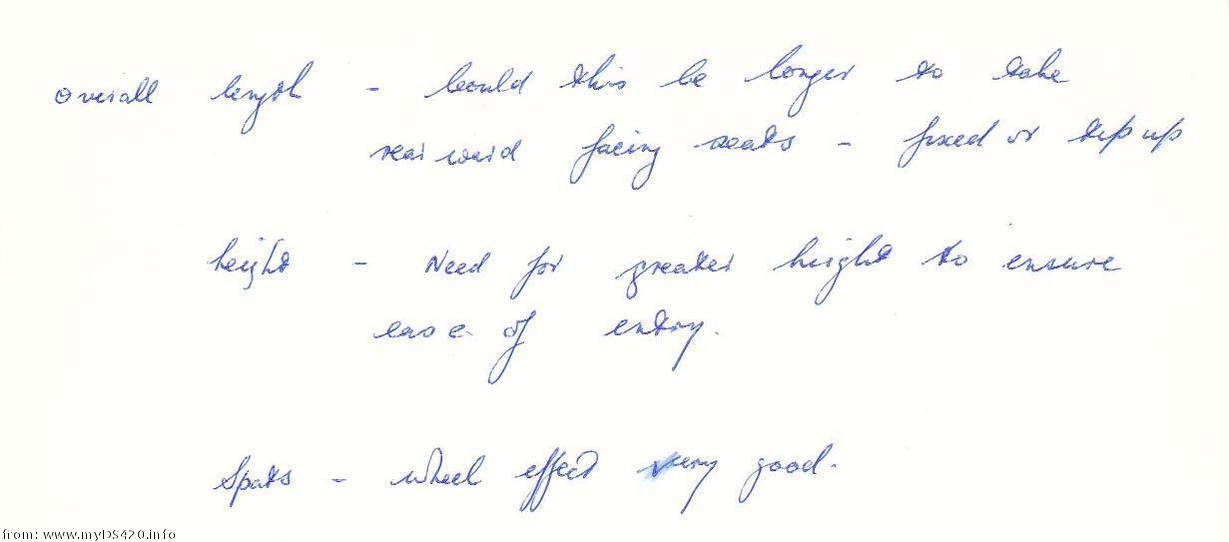 Overall length - Could this be longer to take
rearward facing seats - fixed or tip up
height - Need for greater height to ensure
ease of entry.
Spats - wheel effect very good.
from: www.myDS420.info